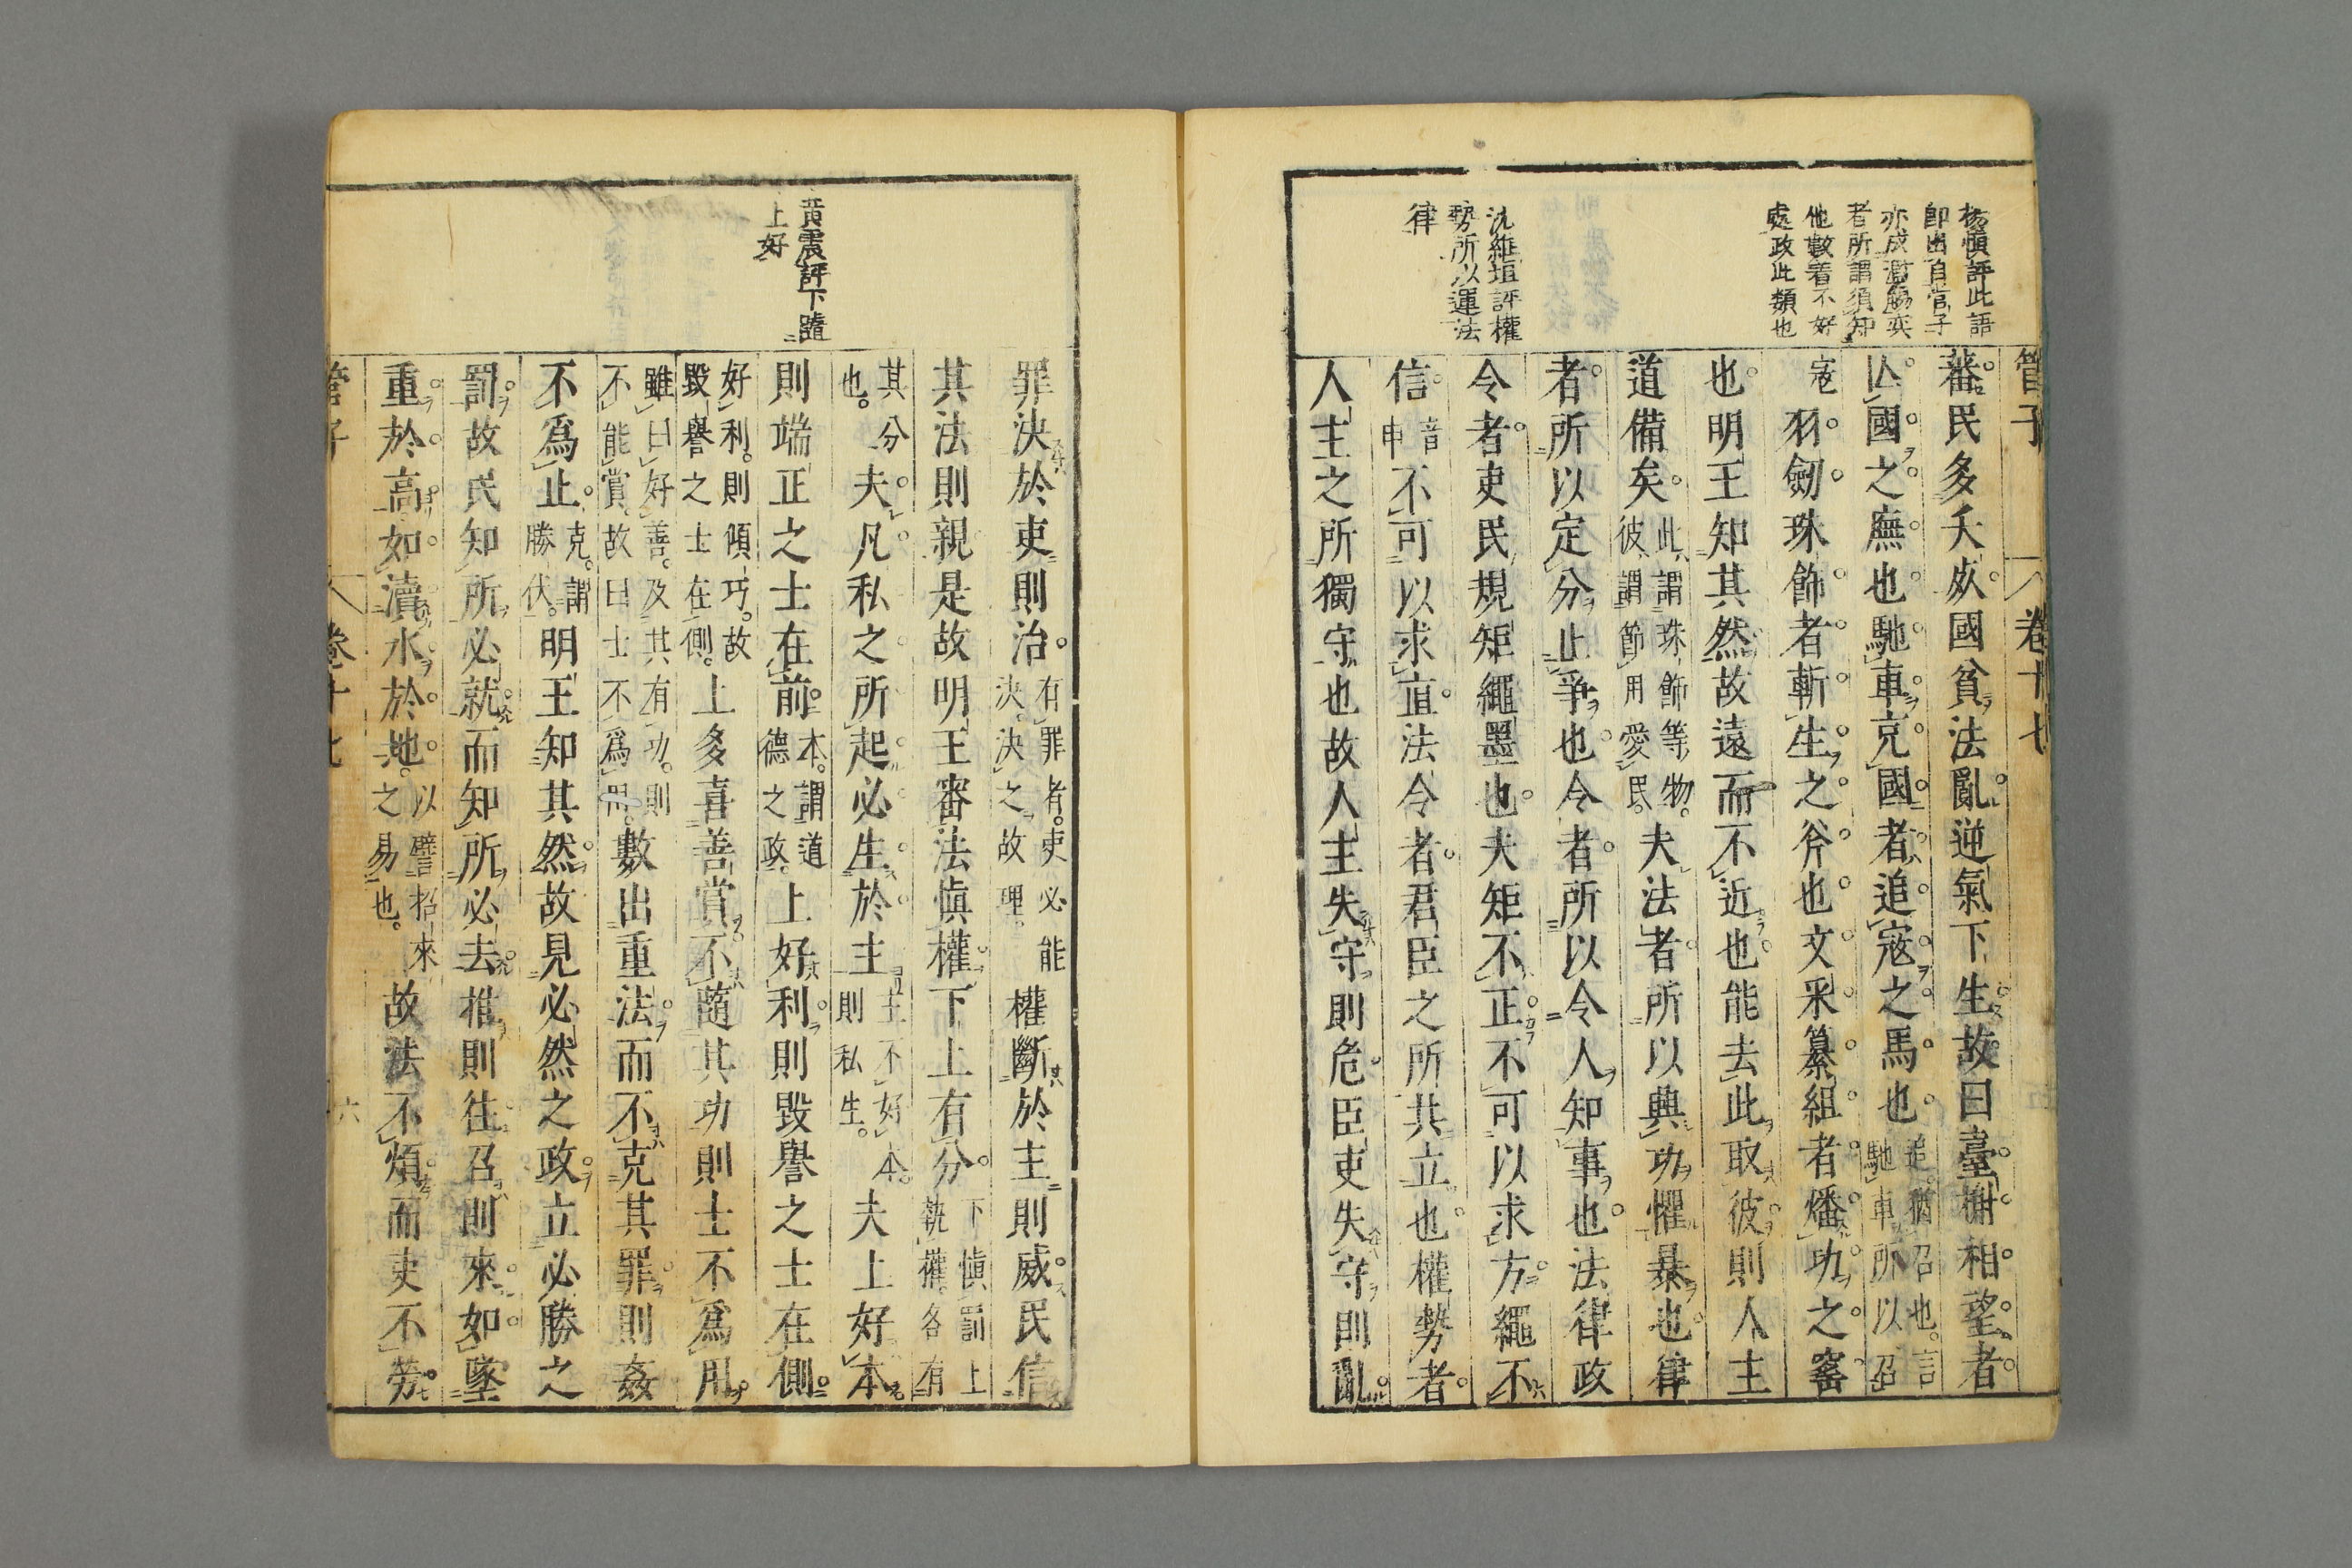 管子
卷十七
楊慎評此語
即出自管子
亦成濫觴奕
者所謂須知
他數着不好
處政此類也
沈維垣評權
勢所以運法
律
蕃民多夭夶國貧法亂逆氣下生故曰臺榭相望者
亾國之廡也馳車充國者追寇之馬也追猶召也言馳車所以召
寇羽劒珠飾者斬生之斧也文采纂組者燔功之窰
也明王知其然故遠而不近也能去此取彼則人主
道備矣此謂珠飾等物彼謂節用愛民夫法者所以興功懼暴也律
者所以定分止爭也令者所以令人知事也法律政
令者吏民規矩繩墨也夫矩不正不可以求方繩不
信音申不可以求直法令者君臣之所共立也權勢者
人主之所獨守也故人主失守則危臣吏失守則亂
黃震評下隨
上好
罪決於吏則治有罪者吏必能決決之故理權斷於主則威民信
其法則親是故明王審法愼權下上有分下愼罰上執權各有
其分也夫凡私之所起必生於主主不好本則私生夫上好本
則端正之士在前本謂道德之政上好利則毀譽之士在側
好利則傾巧故毀譽之士在側上多喜善賞不隨其功則士不爲用
雖曰好善及其有功則不能賞故曰士不爲用數出重法而不克其罪則姦
不爲止克謂勝伏明王知其然故見必然之政立必勝之
罰故民知所必就而知所必去推則往召則來如墜
重於高如瀆水於地以譬招來之易也故法不煩而吏不勞
管子
卷十七
六